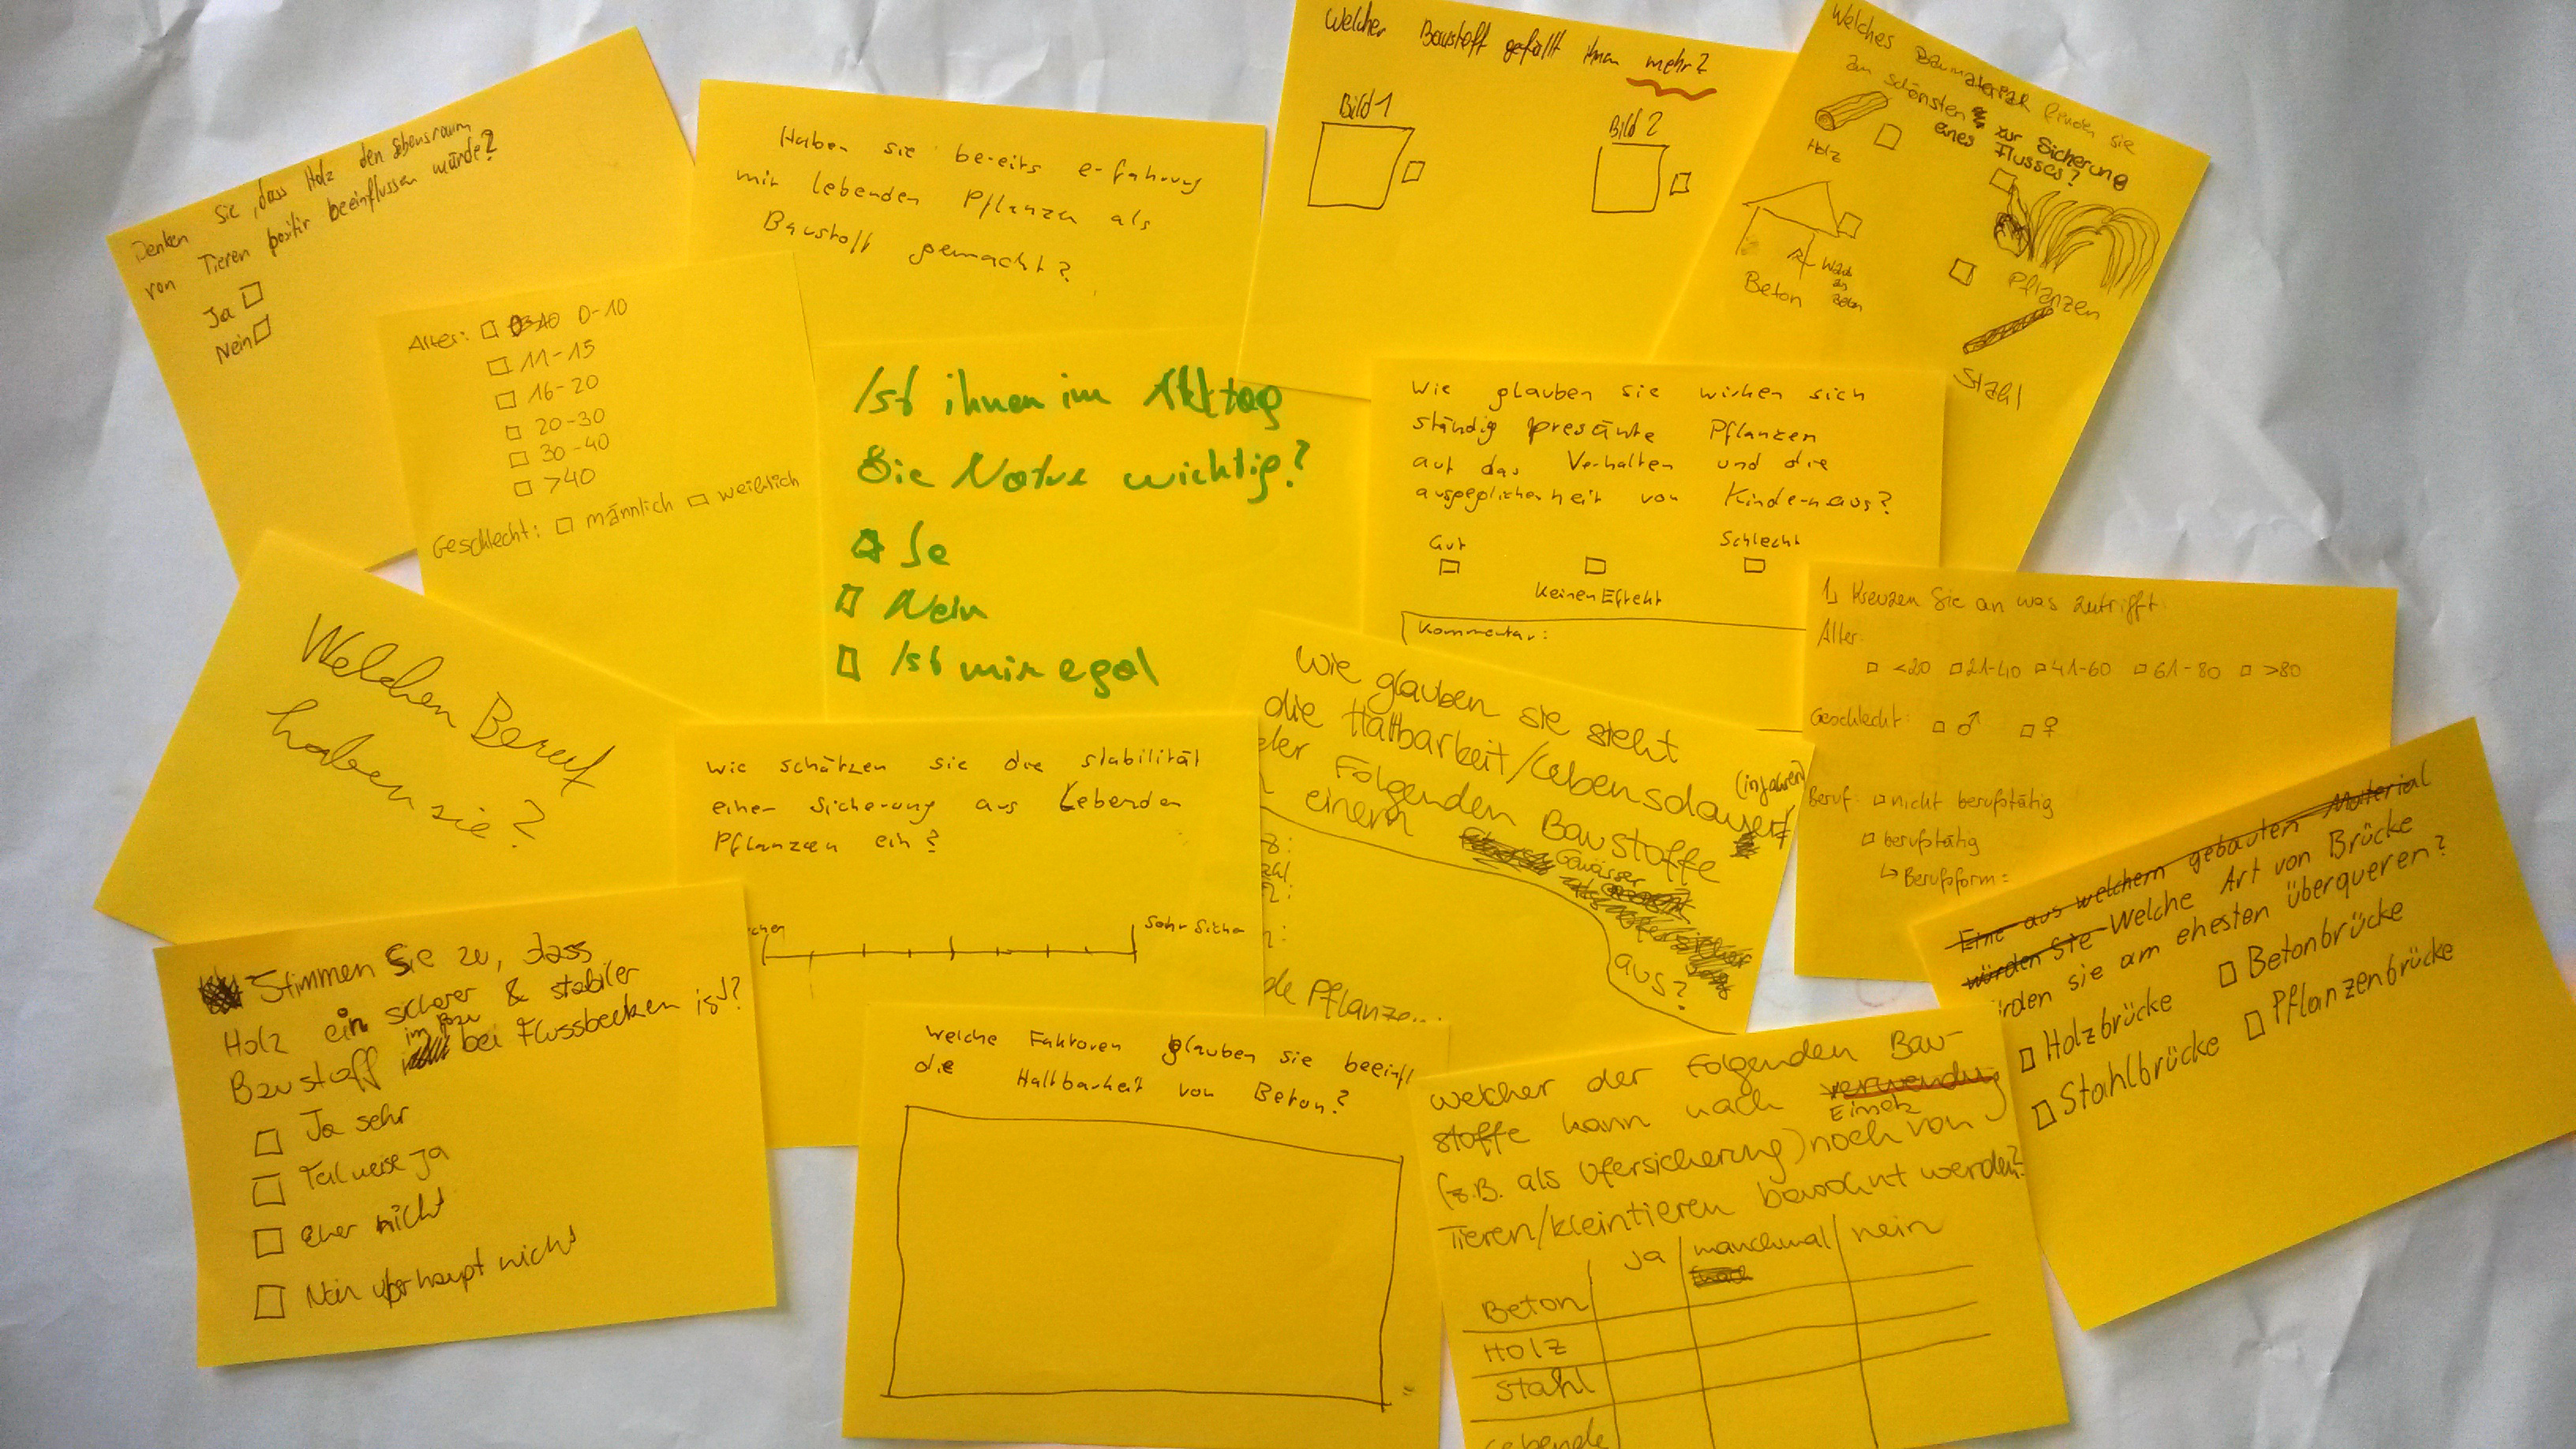 Denken Sie, dass Holz den Lebensraum
von Tieren positiv beeinflussen würde?
Ja
Nein
Alter: 0-10
11-15
16-20
20-30
30-40
>40
Geschlecht: männlich weiblich
Haben sie bereits erfahrung
mit lebenden Pflanzen als
Baustoff gemacht?
Welcher Baustoff gefällt ihnen mehr?
Bild 1
Bild 2
Welches Baumaterial finden sie
am schönsten zur Sicherung
eines Flusses?
Holz
Beton
Pflanzen
Stahl
Ist ihnen im Alltag
Die Natur wichtig?
Ja
Nein
Ist mir egal
Wie glauben sie wirken sich
ständig presänte Pflanzen
auf das Verhalten und die
ausgeglichenheit von Kindern aus?
Gut
Keinen Effekt
Schlecht
Kommentar:
1, Kreuzen Sie an was zutrifft
Alter:
<20 21-40 41-60 61-80 >80
Geschlecht: ♂ ♀
Beruf: nicht berufstätig
berufstätig
↳ Berufsform:
Welchen Beruf
haben sie?
Wie schätzen sie die stabilität
einer Sicherung aus Lebenden
Pflanzen ein?
cher
Sehr Sicher
Wie glauben sie steht
die Haltbarkeit/Lebensdauer
(in Jahren)
der Folgenden Baustoffe
einem
Gewässer
aus?
de Pflanze...
Eine aus welchem gebauten Material
würden Sie Welche Art von Brücke
rden sie am ehesten überqueren?
Holzbrücke
Betonbrücke
Stahlbrücke
Pflanzenbrücke
Stimmen Sie zu, dass
Holz ein sicherer & stabiler
Baustoff im Bau bei Flussbecken ist?
Ja sehr
Teilweise ja
Eher nicht
Nein überhaupt nicht
Welche Faktoren glauben sie beeinfl
die Haltbarkeit von Beton?
welcher der Folgenden Bau-
stoffe kann nach verwendung
Einsatz
(z.B. als Ufersicherung) noch von
Tieren/Kleintieren bewohnt werden?
ja manchmal nein
Beton
Holz
Stahl
Lebende